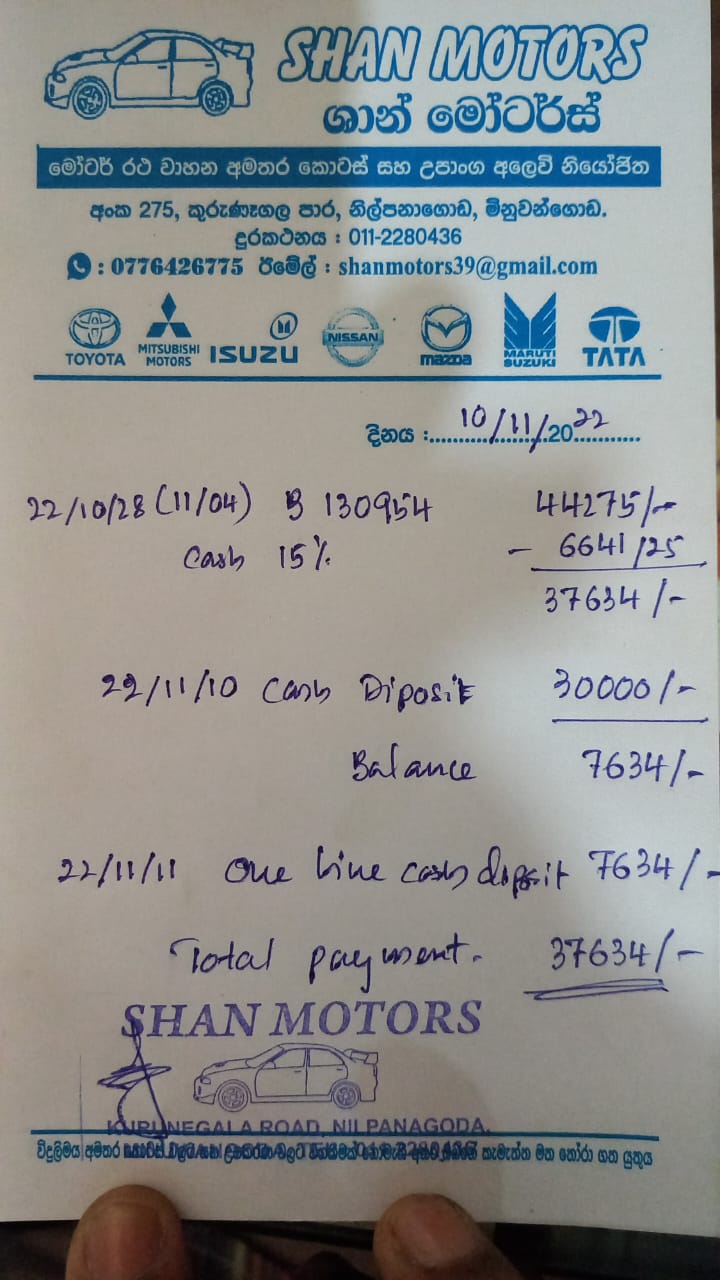 SHAN MOTORS
ශාන් මෝටර්ස්
මෝටර් රථ වාහන අමතර කොටස් සහ උපාංග අලෙවි නියෝජිත
අංක 275, කුරුණෑගල පාර, නිල්පනාගොඩ, මිනුවන්ගොඩ.
දුරකථනය : 011-2280436
: 0776426775 ඊමේල් : shanmotors39@gmail.com
TOYOTA MITSUBISHI MOTORS ISUZU NISSAN mazda MARUTI SUZUKI TATA
දිනය :.......10/11/2022......
22/10/28 (11/04) B 130954 44275/-
Cash 15% - 6641/25
37634/-
22/11/10 Cash Diposit 30000/-
Balance 7634/-
22/11/11 One line cash diposit 7634/-
Total payment. 37634/-
SHAN MOTORS
KURUNEGALA ROAD, NILPANAGODA.
විදුලිමය අමතර කොටස් කැමැත්ත මත තෝරා ගත යුතුය